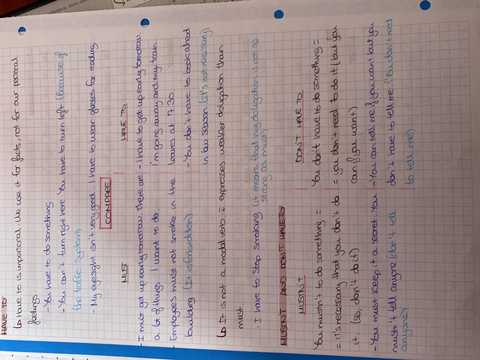 HAVE TO
↳ Have to is impersonal. We use it for facts, not for our personal
feelings.
- You have to do something
- You can't turn right here. You have to turn left (because of
the traffic system)
- My eyesight isn't very good. I have to wear glasses for reading
COMPARE
MUST
- I must get up early tomorrow. There are
a lot of things I want to do.
- Employees must not smoke in the
building (is forbidden)
HAVE TO
- I have to get up early tomorrow
I'm going away and my train
leaves at 7:30.
- You don't have to book ahead
in low season (it's not necessary)
↳ It is not a modal verb. It expresses weaker obligation than
must.
- I have to stop smoking (it means that my obligation is not as
strong as must)
MUSTN'T AND DON'T HAVE TO
MUSTN'T
You mustn't to do something =
= it's necessary that you don't do
it (so, don't do it)
- You must keep it a secret. You
mustn't tell anyone (don't tell
anyone)
DON'T HAVE TO
You don't have to do something =
= you don't need to do it (but you
can if you want)
- You can tell me if you want but you
don't have to tell me (You don't need
to tell me)